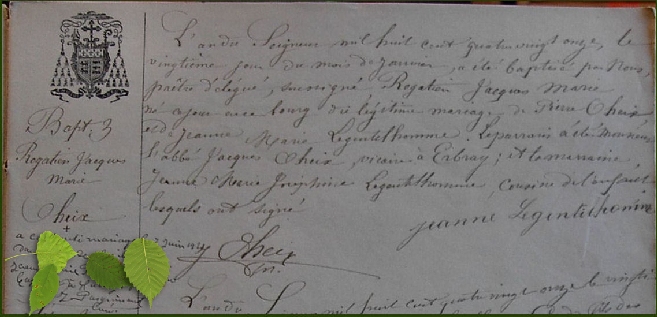 Bapt. 3
Rogatien Jacques
Marie
Cheix
+
L'an du Seigneur mil huit cent quatre vingt onze, le
vingtième jour du mois de janvier, a été baptisé par Nous,
prêtre délégué, soussigné Rogatien Jacques Marie
né ce jour au bourg du légitime mariage de Pierre Cheix
et de Jeanne Marie Legentilhomme. Le parrain a été Monsieur
l'abbé Jacques Cheix, vicaire à Erbray; et la marraine
Jeanne Marie Joséphine Legentilhomme, cousine de l'enfant
lesquels ont signé
jeanne Legentilhomme
J Cheix
L'an du mil huit cent quatre vingt onze le vingt